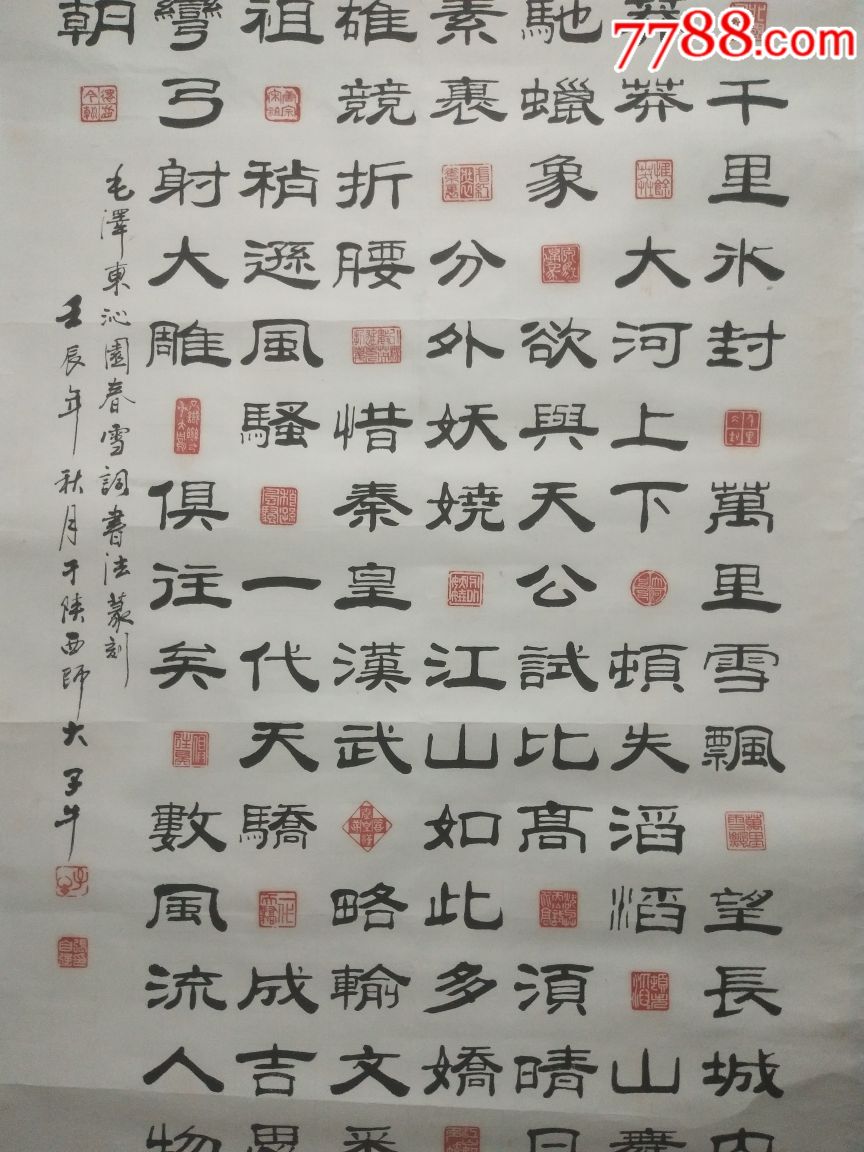 7788.com
千里冰封萬里雪飄望長城内
莽莽大河上下頓失滔滔山舞
馳蠟象欲與天公試比高須晴日
素裹分外妖嬈江山如此多嬌
雄競折腰惜秦皇漢武略輸文采
祖稍遜風騷一代天驕成吉思
彎弓射大雕俱往矣數風流人物
朝
毛澤東沁園春雪詞書法篆刻
壬辰年秋月于陝西師大子牛